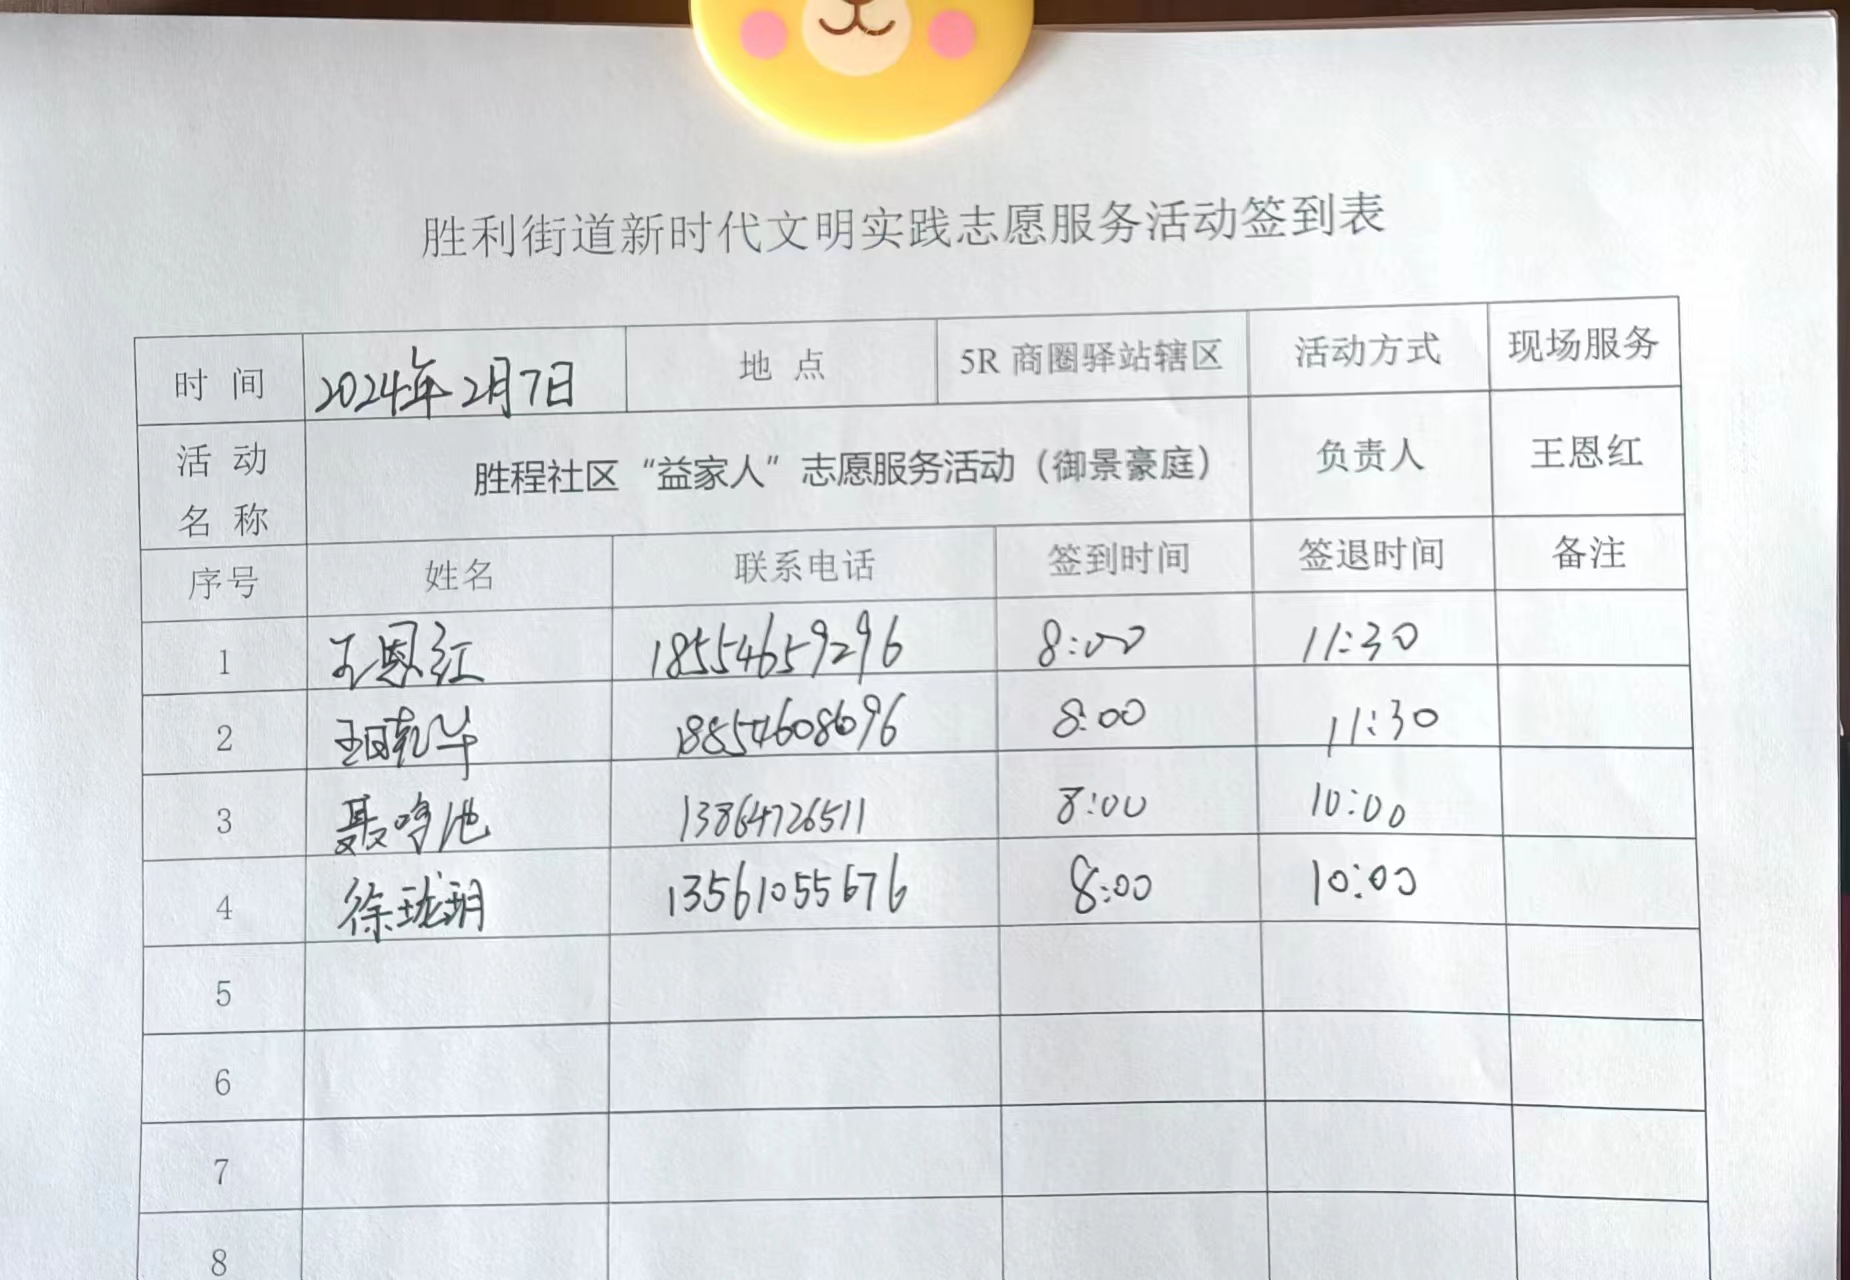 胜利街道新时代文明实践志愿服务活动签到表
时 间 2024年2月7日 地 点 5R 商圈驿站辖区 活动方式 现场服务
活 动
名 称 胜程社区“益家人”志愿服务活动（御景豪庭） 负责人 王恩红
序号 姓名 联系电话 签到时间 签退时间 备注
1 王恩红 18554659296 8:00 11:30
2 18854608096 8:00 11:30
3 13864726511 8:00 10:00
4 徐珑玥 13561055676 8:00 10:00
5
6
7
8